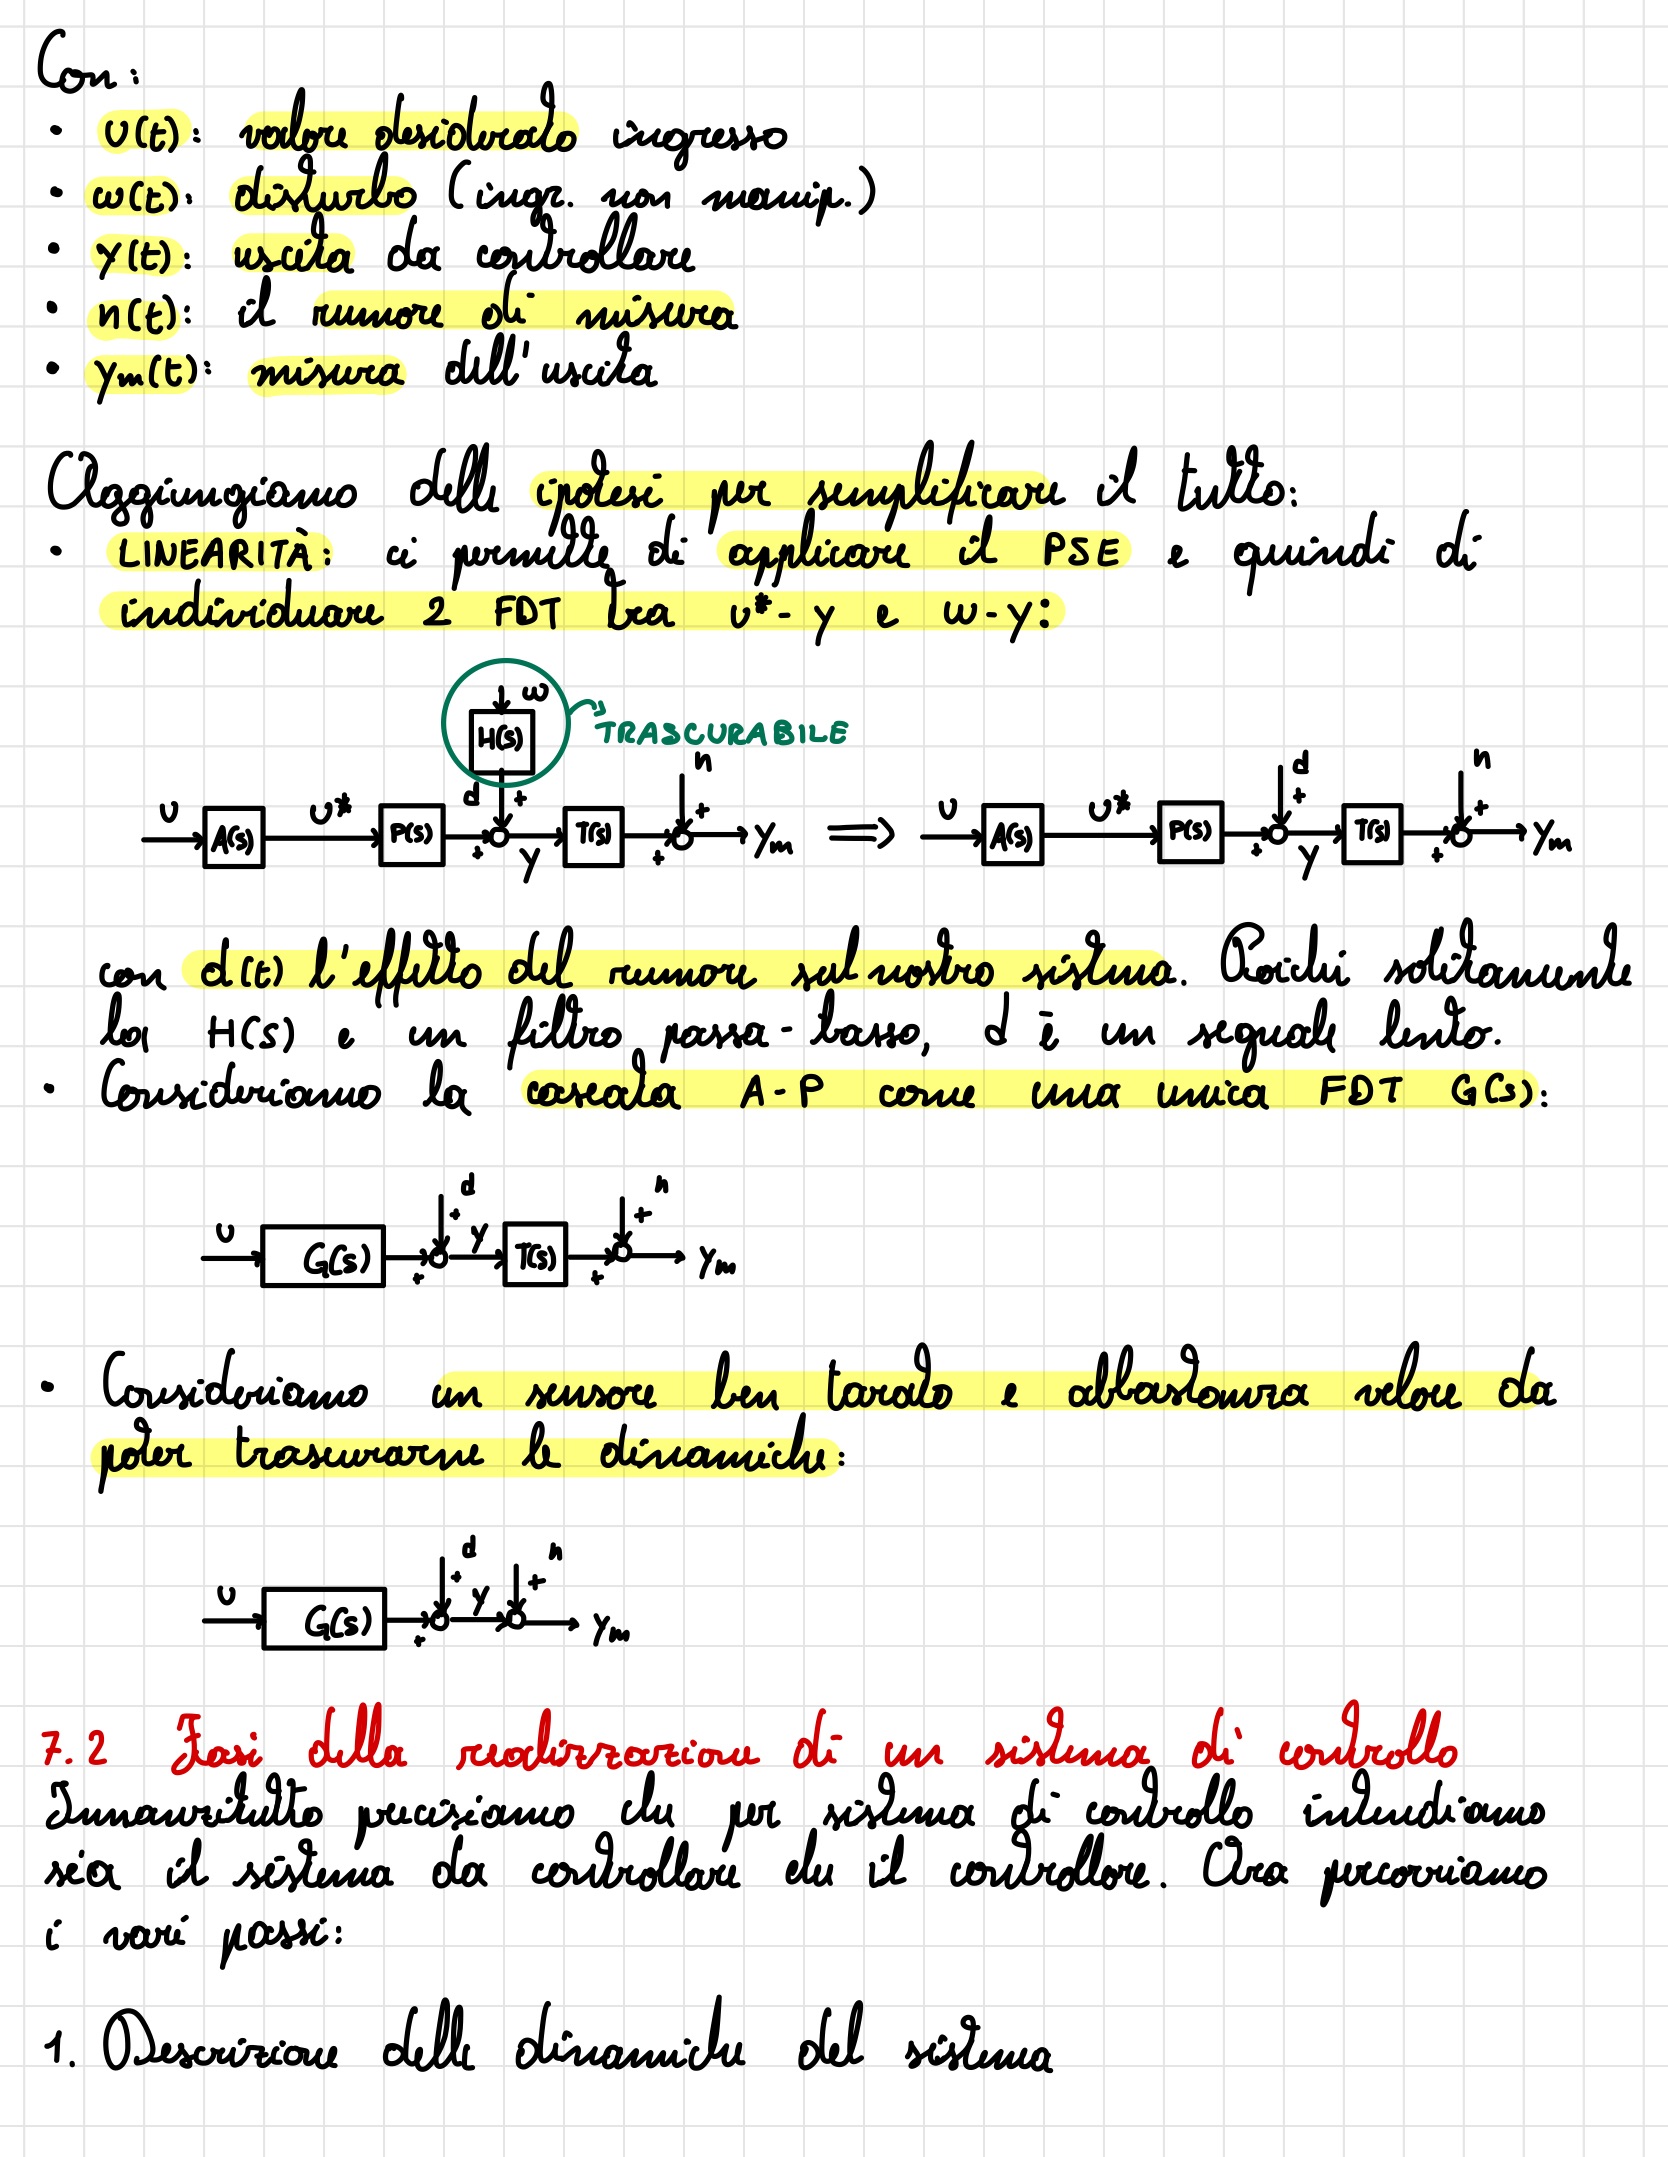 Con:
• U(t): valore desiderato ingresso
• ω(t): disturbo (ingr. non manip.)
• y(t): uscita da controllare
• n(t): il rumore di misura
• ym(t): misura dell'uscita
Aggiungiamo delle ipotesi per semplificare il tutto:
• LINEARITÀ: ci permette di applicare il PSE e quindi di
individuare 2 FDT tra u*-y e w-y:
ω
H(s)
TRASCURABILE
U A(s) U* P(s) d + + y T(s) n + + ym ⟹ U A(s) U* P(s) d + + y T(s) n + + ym
con d(t) l'effetto del rumore sul nostro sistema. Poichè solitamente
la H(s) e un filtro passa-basso, d è un segnale lento.
• Consideriamo la cascata A-P come una unica FDT G(s):
U G(s) d + + y T(s) n + + ym
• Consideriamo un sensore ben tarato e abbastanza veloce da
poter trascurarne le dinamiche:
U G(s) d + + y n + ym
7.2 Fasi della realizzazione di un sistema di controllo
Innanzitutto precisiamo che per sistema di controllo intendiamo
sia il sistema da controllare che il controllore. Ora percorriamo
i vari passi:
1. Descrizione delle dinamiche del sistema